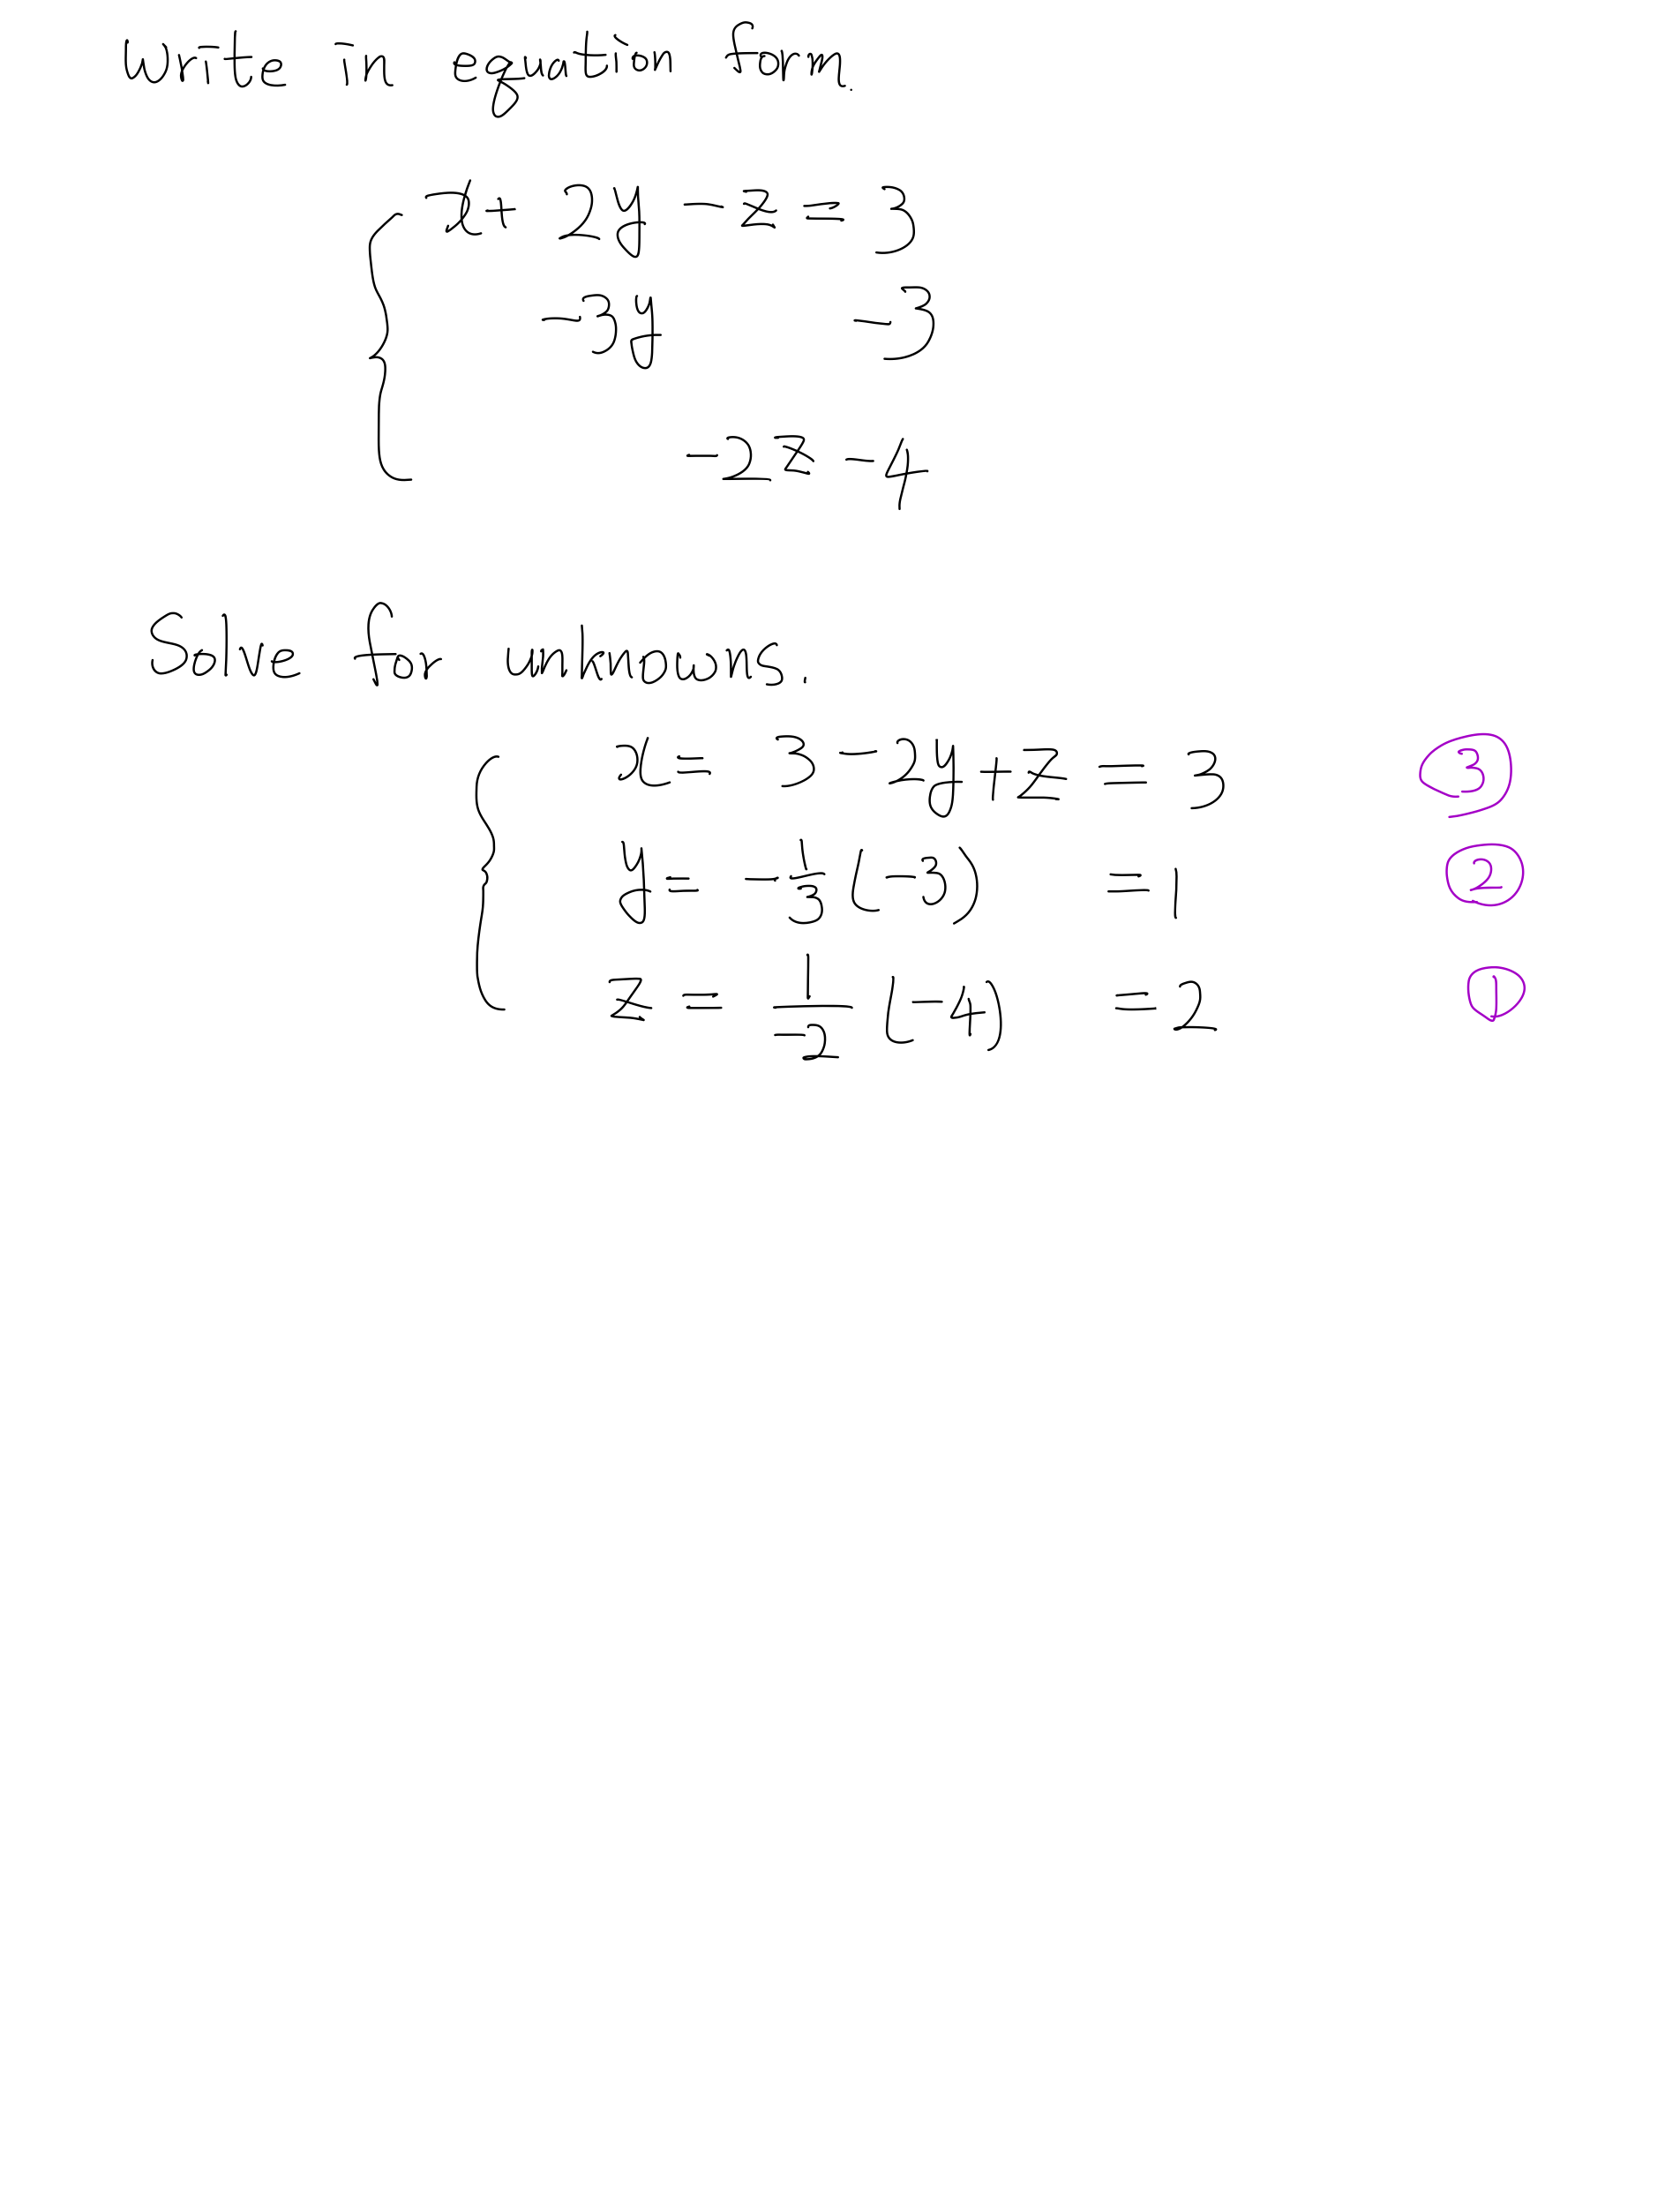 Write in equation form.
x + 2y - z = 3
-3y -3
-2z -4
Solve for unknowns.
x = 3 - 2y + z = 3 ③
y = -1/3 (-3) = 1 ②
z = 1/-2 (-4) = 2 ①